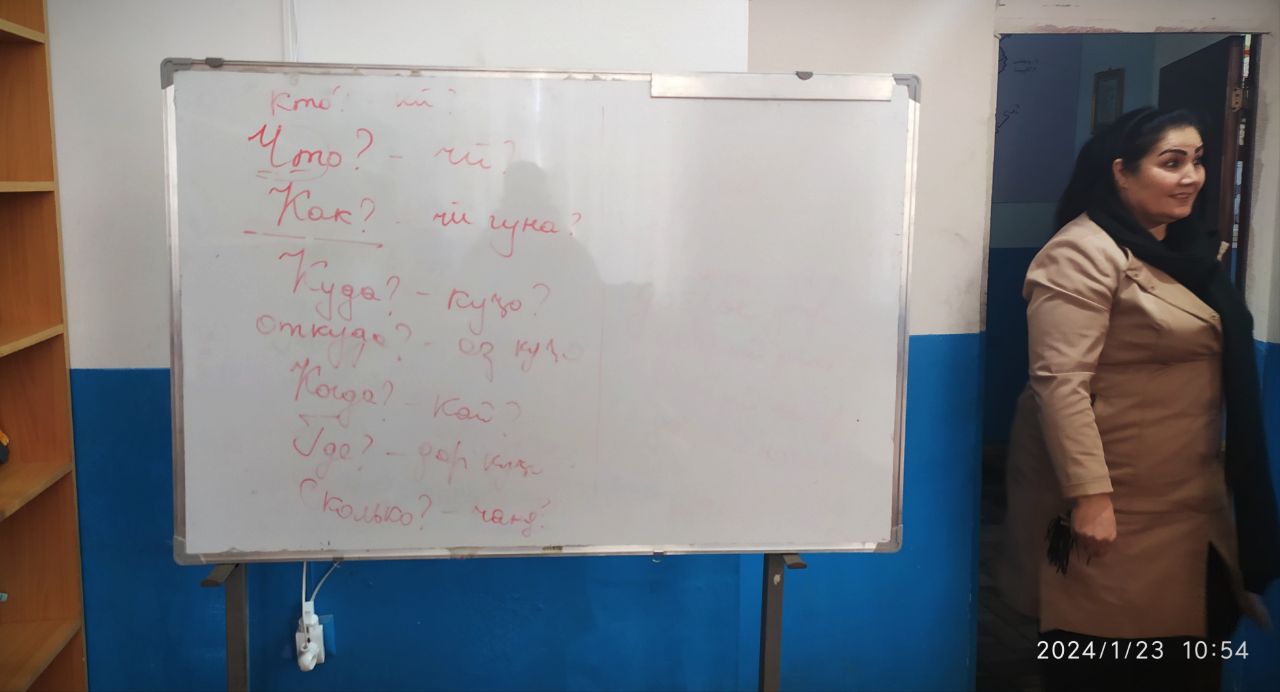 кто?
Что? - чӣ?
Как? - чӣ гуна?
Куда? - куҷо?
откуда? - аз куҷо
Когда? - Кай?
Где? - дар куҷо
Сколько? - чанд?
2024/1/23 10:54